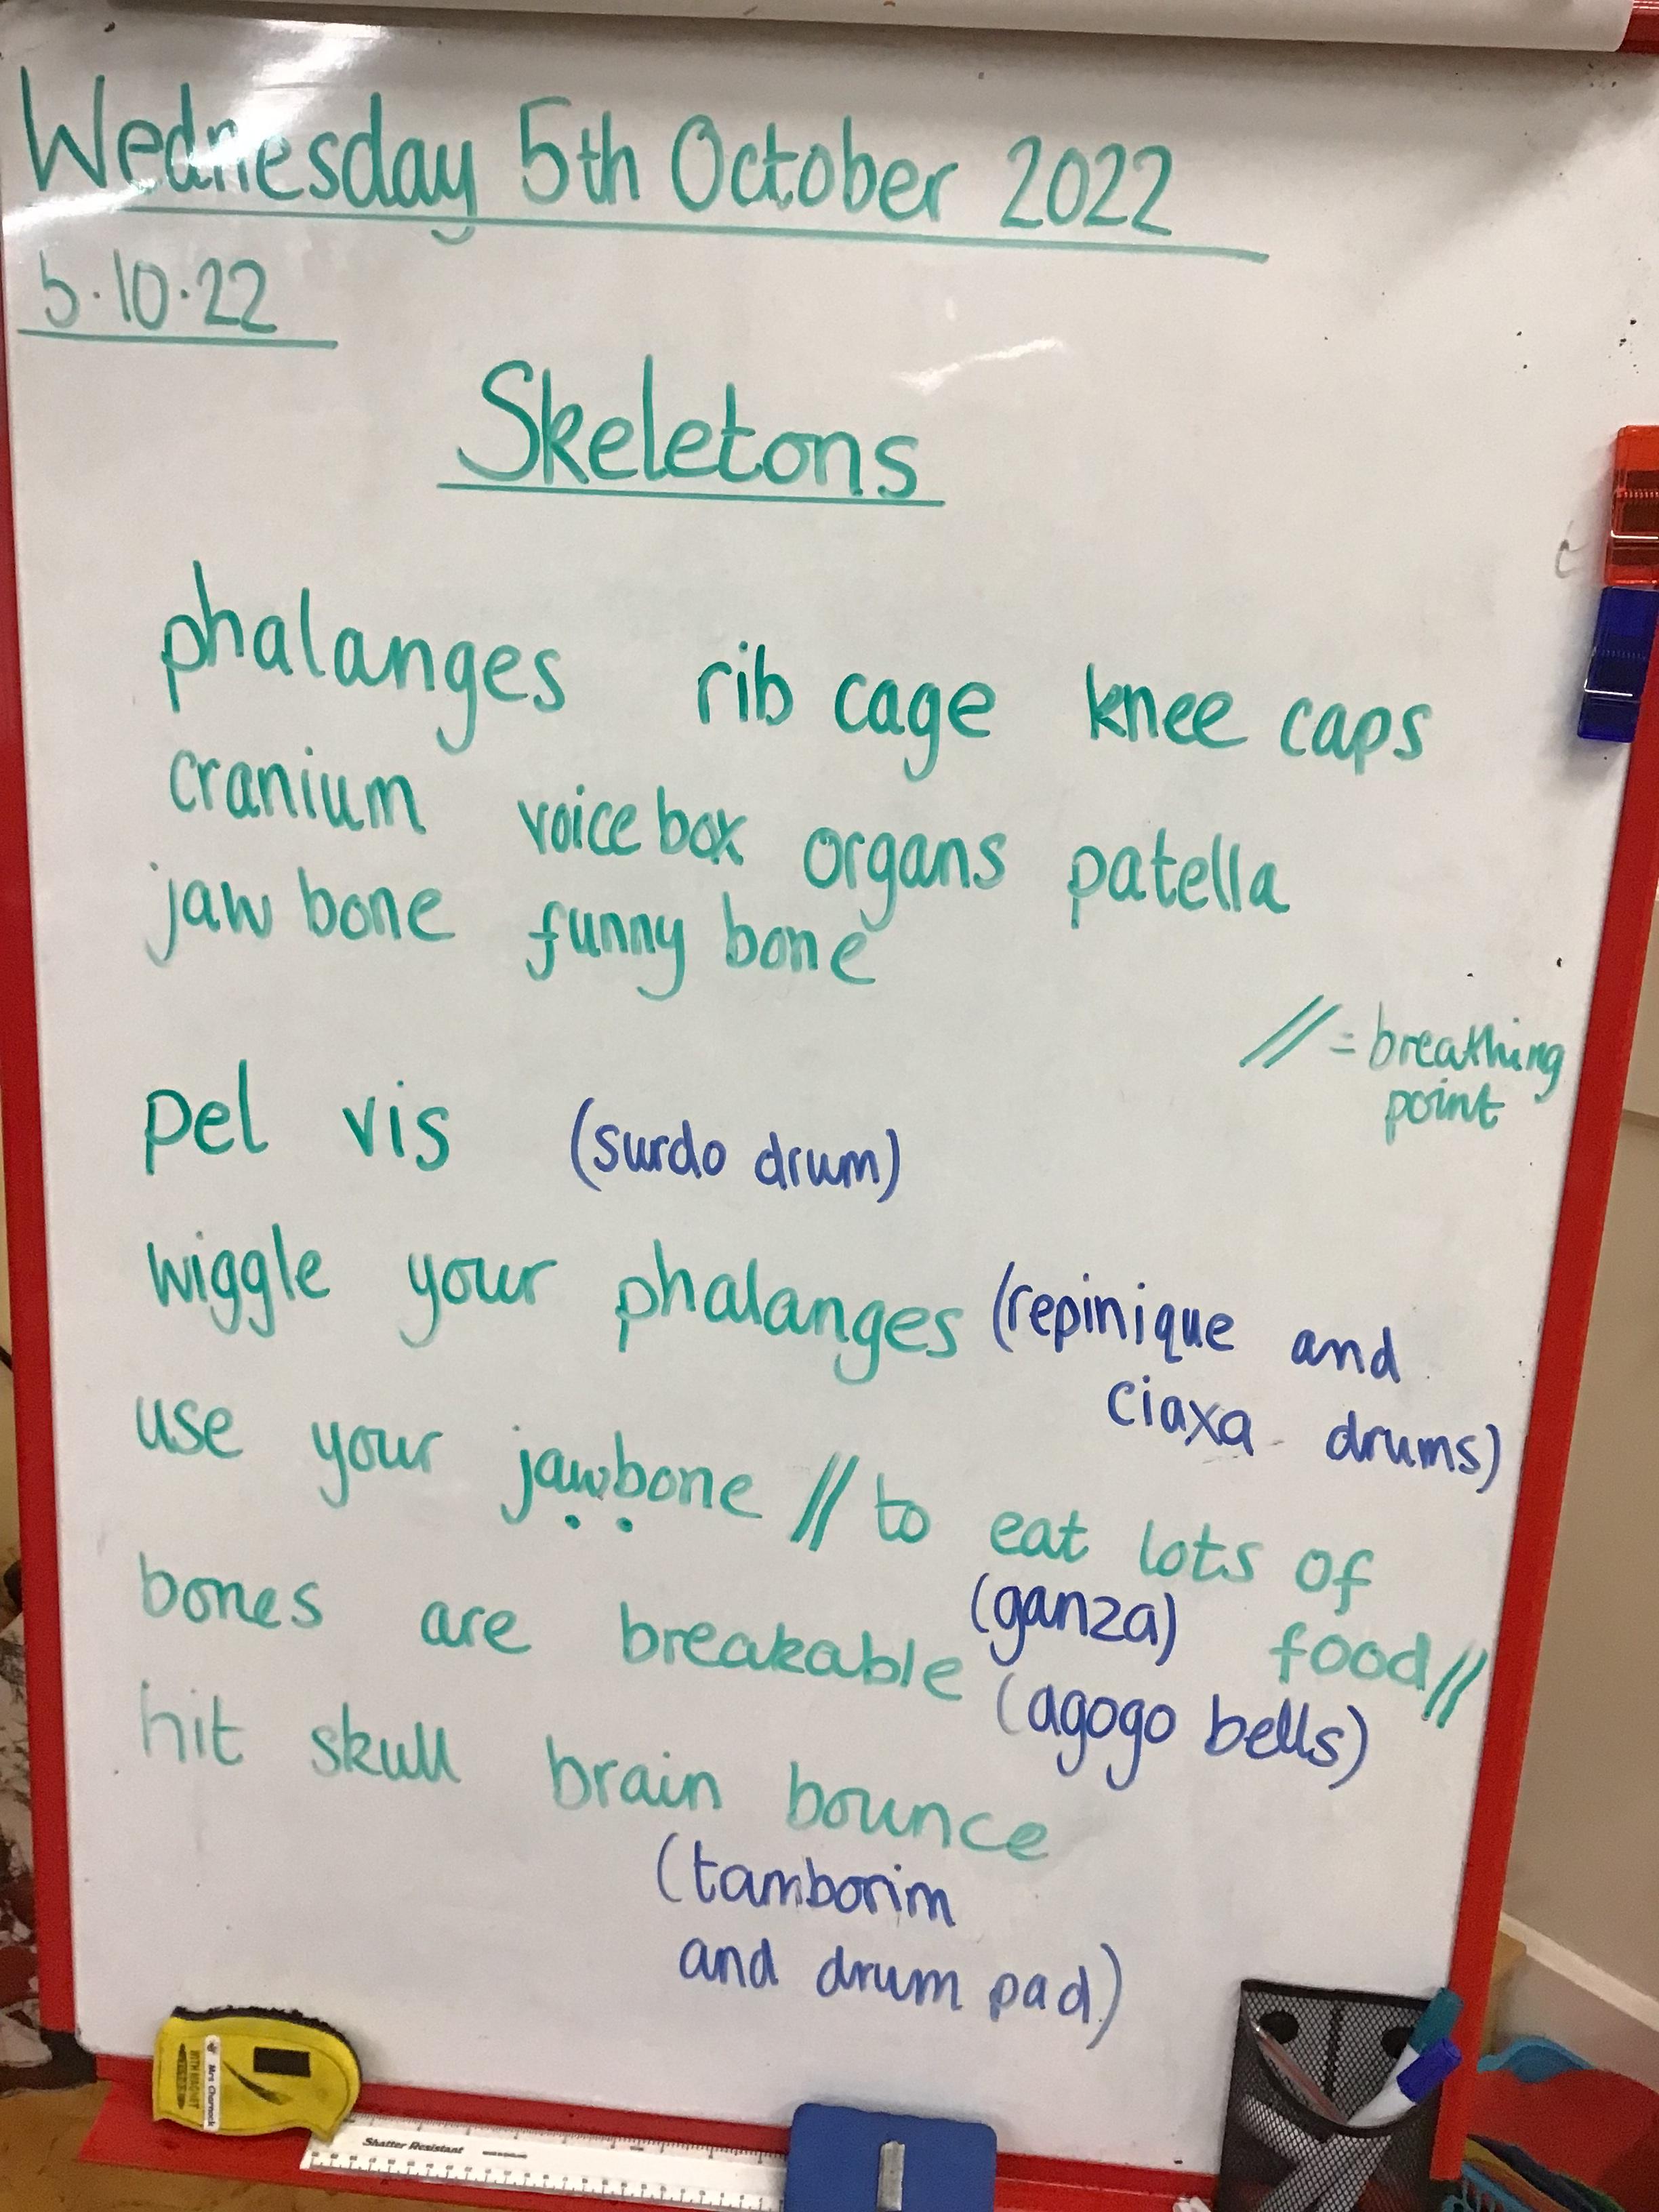 Wednesday 5th October 2022
5.10.22
Skeletons
phalanges rib cage knee caps
cranium voice box organs patella
jaw bone funny bone
// = breathing
point
pel vis (surdo drum)
wiggle your phalanges (repinique and
ciaxa drums)
use your jawbone // to eat lots of
food//
(ganza)
bones are breakable
(agogo bells)
hit skull brain bounce
(tamborim
and drum pad)
Mrs Charnock
Shatter Resistant